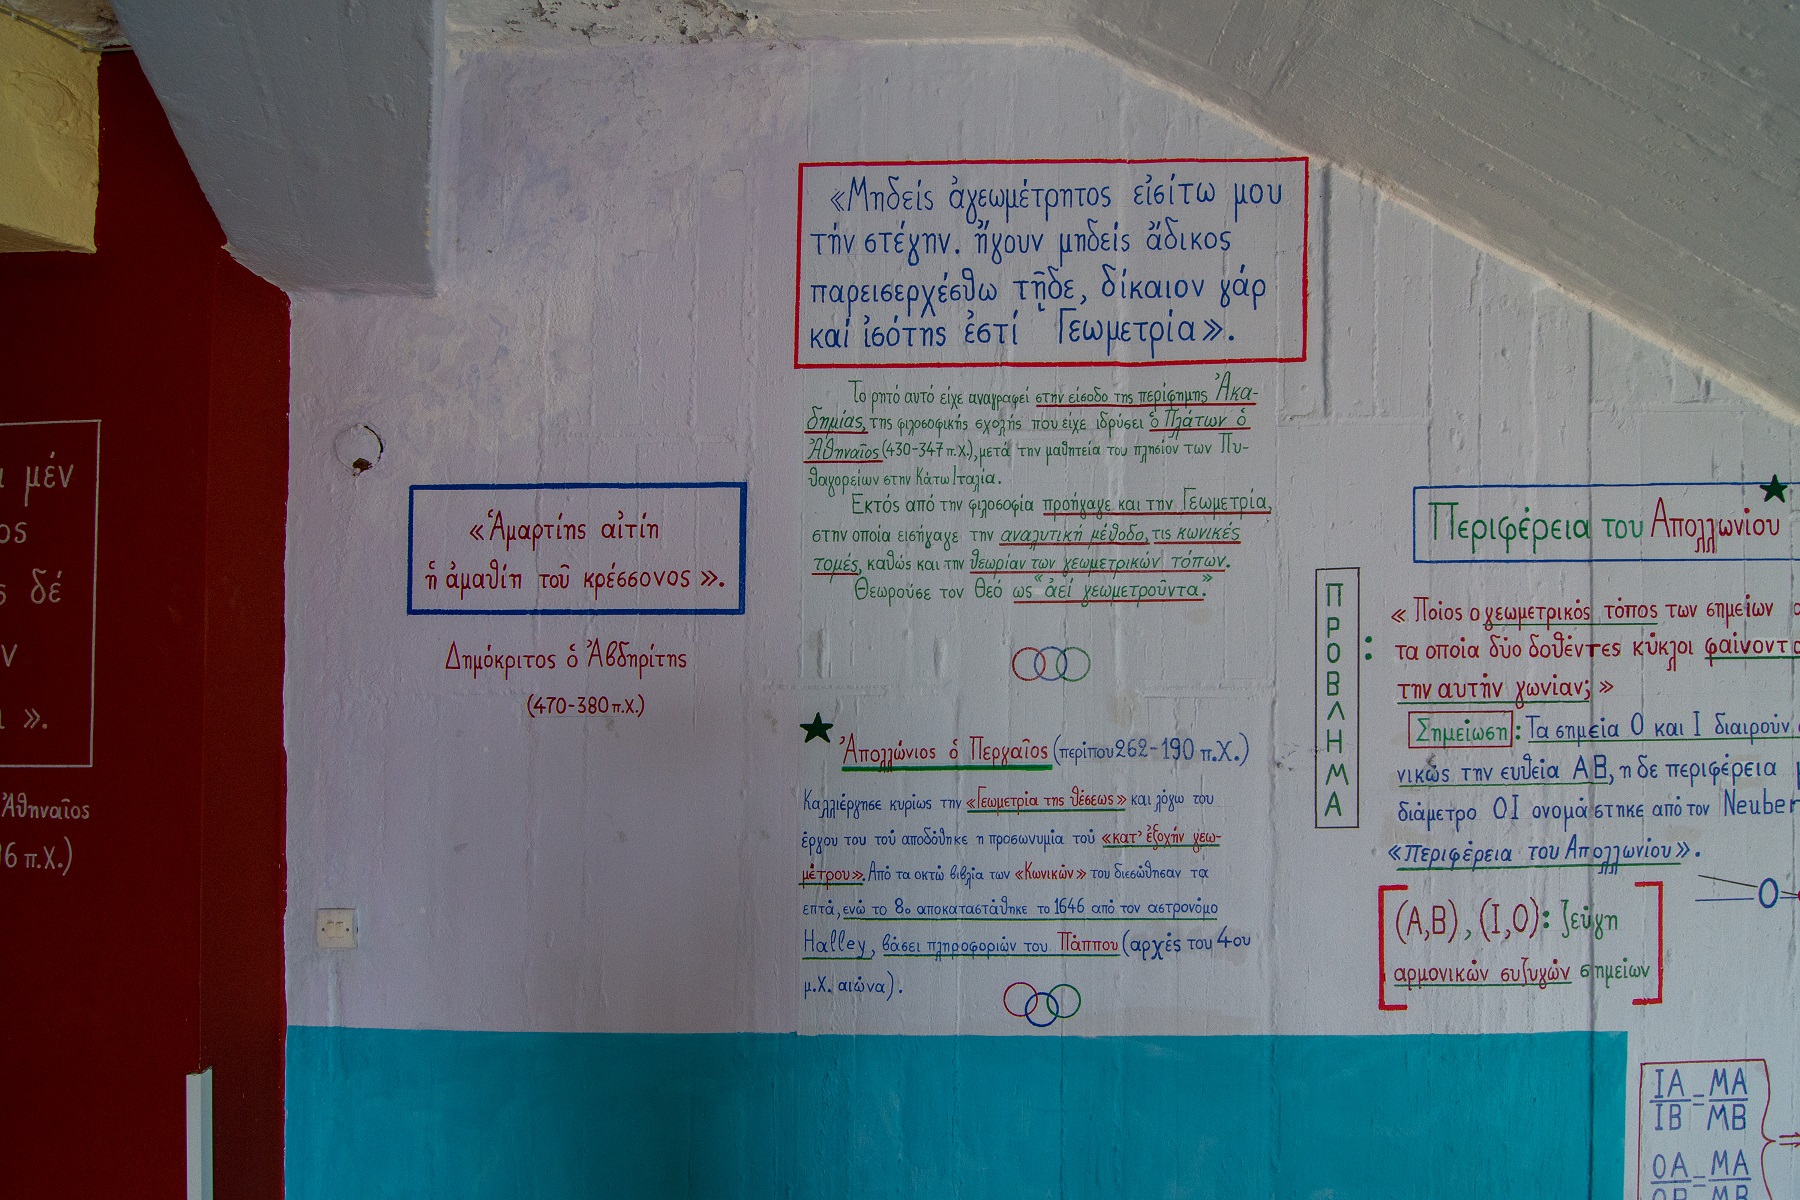 μέν
ος
δέ
ν
».
Ἀθηναῖος
6 π.Χ.)
«Ἁμαρτίης αἰτίη
ἡ ἀμαθίη τοῦ κρέσσονος».
Δημόκριτος ὁ Ἀβδηρίτης
(470-380 π.Χ.)
«Μηδείς ἀγεωμέτρητος εἰσίτω μου
τήν στέγην. ἤγουν μηδείς ἄδικος
παρεισερχέσθω τῇδε, δίκαιον γάρ
καί ἰσότης ἐστί Γεωμετρία».
Το ρητό αυτό είχε αναγραφεί στην είσοδο της περίφημης Ἀκα-
δημίας, της φιλοσοφικής σχολής που είχε ιδρύσει ὁ Πλάτων ὁ
Ἀθηναῖος (430-347 π.Χ.), μετά την μαθητεία του πλησίον των Πυ-
θαγορείων στην Κάτω Ιταλία.
Εκτός από την φιλοσοφία προήγαγε και την Γεωμετρία,
στην οποία εισήγαγε την αναλυτική μέθοδο, τις κωνικές
τομές, καθώς και την θεωρίαν των γεωμετρικών τόπων.
Θεωρούσε τον Θεό ως "ἀεί γεωμετροῦντα."
Ἀπολλώνιος ὁ Περγαῖος (περίπου 262-190 π.Χ.)
Καλλιέργησε κυρίως την «Γεωμετρία της θέσεως» και λόγω του
έργου του τού αποδόθηκε η προσωνυμία τού «κατ' ἐξοχήν γεω-
μέτρου». Από τα οκτώ βιβλία των «Κωνικών» του διεσώθησαν τα
επτά, ενώ το 8ο αποκαταστάθηκε το 1646 από τον αστρονόμο
Halley, βάσει πληροφοριών του Πάππου (αρχές του 4ου
μ.Χ. αιώνα).
Περιφέρεια του Απολλωνίου
ΠΡΟΒΛΗΜΑ:
«Ποίος ο γεωμετρικός τόπος των σημείων α
τα οποία δύο δοθέντες κύκλοι φαίνοντα
την αυτήν γωνίαν;»
Σημείωση: Τα σημεία Ο και Ι διαιρούν
νικώς την ευθεία ΑΒ, η δε περιφέρεια
διάμετρο ΟΙ ονομάστηκε από τον Neuber
«Περιφέρεια του Απολλωνίου».
(Α,Β), (Ι,Ο): ζεύγη
αρμονικών συζυγών σημείων
ΙΑ/ΙΒ = ΜΑ/ΜΒ ⇒
ΟΑ/ΟΒ = ΜΑ/ΜΒ